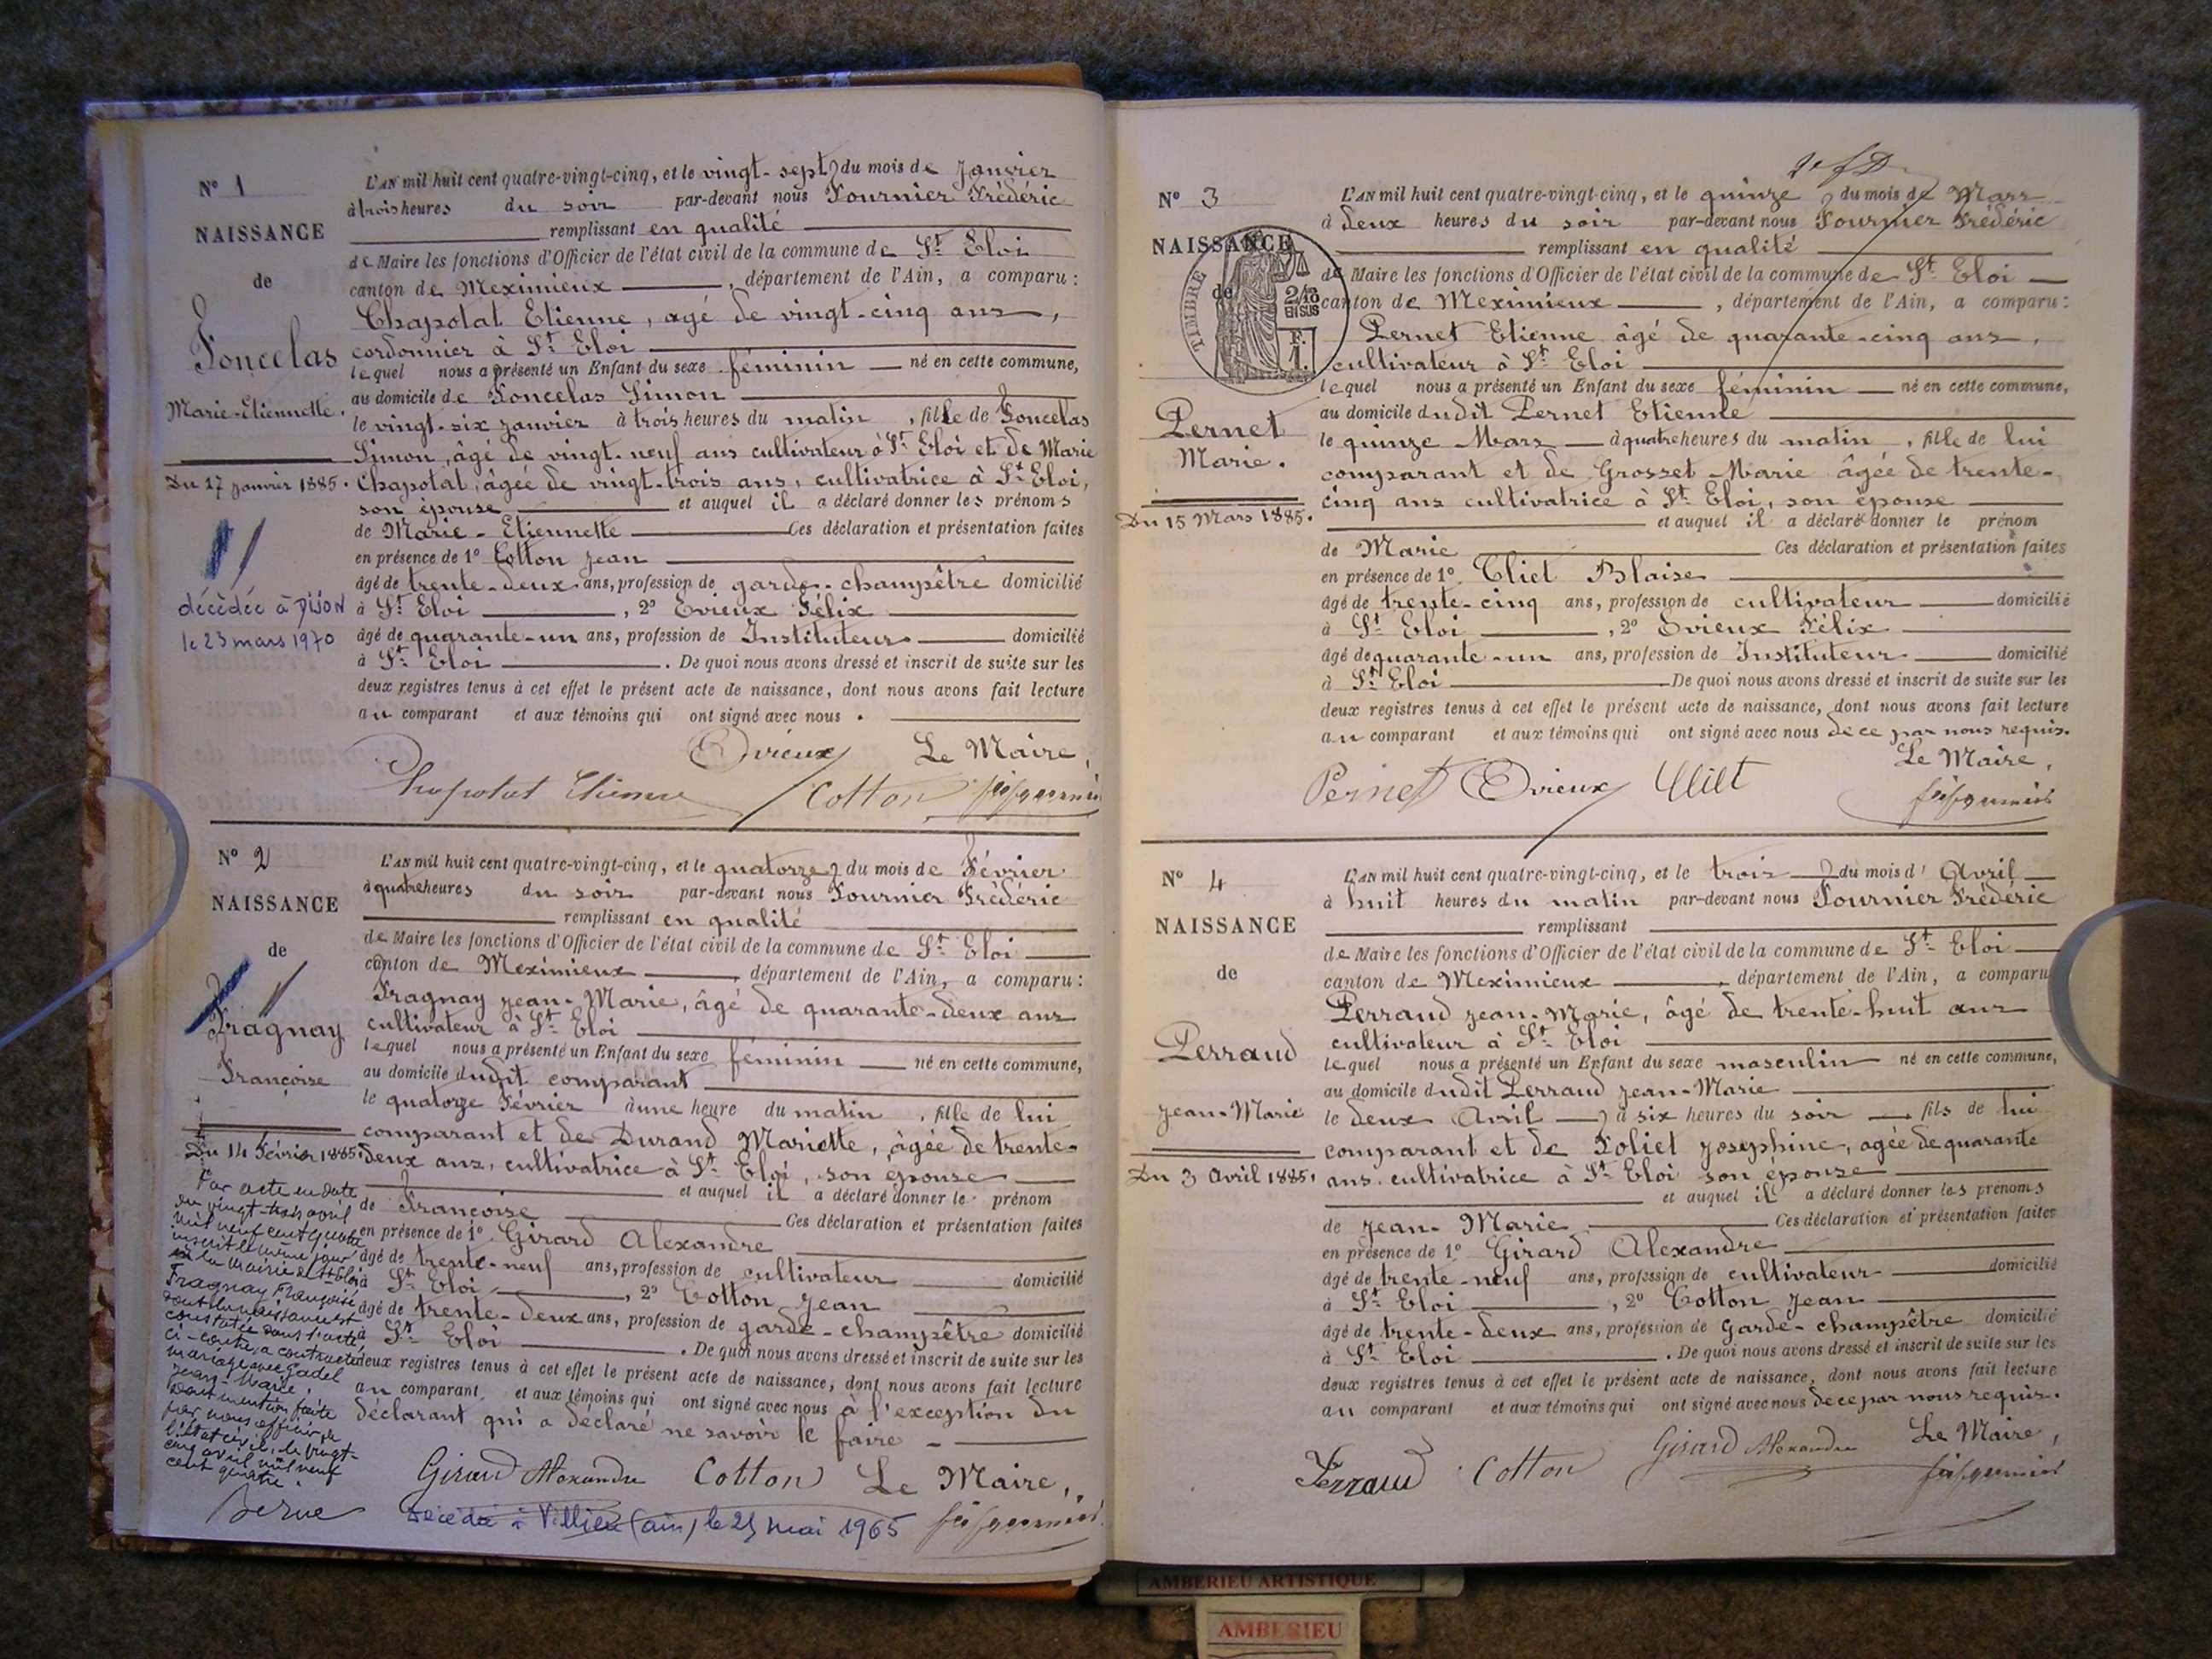 N° 1
NAISSANCE
de
Foncelas
Marie-Etiennette.
Du 27 janvier 1885.
décédée à DIJON
le 23 mars 1970
L'AN mil huit cent quatre-vingt-cinq, et le vingt-sept du mois de Janvier
à trois heures du soir par-devant nous Fournier Frédéric
remplissant en qualité
de Maire les fonctions d'Officier de l'état civil de la commune de St Eloi
canton de Meximieux, département de l'Ain, a comparu :
Chapotat Etienne, agé de vingt-cinq ans,
cordonnier à St Eloi
lequel nous a présenté un Enfant du sexe féminin né en cette commune,
au domicile de Foncelas Simon
le vingt-six janvier à trois heures du matin, fille de Foncelas
Simon, âgé de vingt-neuf ans cultivateur à St Eloi et de Marie
Chapotat, âgée de vingt-trois ans, cultivatrice à St Eloi,
son épouse et auquel il a déclaré donner les prénoms
de Marie-Etiennette Ces déclaration et présentation faites
en présence de 1° Cotton Jean
âgé de trente-deux ans, profession de garde-champêtre domicilié
à St Eloi, 2° Evieux Félix
âgé de quarante-un ans, profession de Instituteur domicilié
à St Eloi. De quoi nous avons dressé et inscrit de suite sur les
deux registres tenus à cet effet le présent acte de naissance, dont nous avons fait lecture
au comparant et aux témoins qui ont signé avec nous.
Evieux Le Maire,
Chapotat Etienne Cotton
N° 2
NAISSANCE
de
Fragnay
Françoise
Du 14 Février 1885.
Par acte en date
du vingt-trois avril
mil neuf cent quatre
inscrit le même jour
à la mairie de St Eloi
Fragnay Françoise
dont la naissance est
constatée dans l'acte
ci-contre, a contracté
mariage avec Gadel
Jean-Marie.
Dont mention faite
par nous officier de
l'état civil, le vingt-
cinq avril mil neuf
cent quatre.
Berne
L'AN mil huit cent quatre-vingt-cinq, et le quatorze du mois de Février
à quatre heures du soir par-devant nous Fournier Frédéric
remplissant en qualité
de Maire les fonctions d'Officier de l'état civil de la commune de St Eloi
canton de Meximieux, département de l'Ain, a comparu :
Fragnay Jean-Marie, âgé de quarante-deux ans
cultivateur à St Eloi
lequel nous a présenté un Enfant du sexe féminin né en cette commune,
au domicile dudit comparant
le quatorze Février à une heure du matin, fille de lui
comparant et de Durand Mariette, âgée de trente-
deux ans, cultivatrice à St Eloi, son épouse
et auquel il a déclaré donner le prénom
de Françoise Ces déclaration et présentation faites
en présence de 1° Girard Alexandre
âgé de trente-neuf ans, profession de cultivateur domicilié
à St Eloi, 2° Cotton Jean
âgé de trente-deux ans, profession de garde-champêtre domicilié
à St Eloi. De quoi nous avons dressé et inscrit de suite sur les
deux registres tenus à cet effet le présent acte de naissance, dont nous avons fait lecture
au comparant et aux témoins qui ont signé avec nous à l'exception du
déclarant qui a déclaré ne savoir le faire
Girard Alexandre Cotton Le Maire,
Décédée à Villieu (ain) le 25 mai 1965
N° 3
NAISSANCE
de
TIMBRE
2/10 EN SUS
F. 1.
Pernet
Marie.
Du 15 Mars 1885.
L'AN mil huit cent quatre-vingt-cinq, et le quinze du mois de Mars
à deux heures du soir par-devant nous Fournier Frédéric
remplissant en qualité
de Maire les fonctions d'Officier de l'état civil de la commune de St Eloi
canton de Meximieux, département de l'Ain, a comparu :
Pernet Etienne âgé de quarante-cinq ans,
cultivateur à St Eloi
lequel nous a présenté un Enfant du sexe féminin né en cette commune,
au domicile dudit Pernet Etienne
le quinze Mars à quatre heures du matin, fille de lui
comparant et de Grosset Marie âgée de trente-
cinq ans cultivatrice à St Eloi, son épouse
et auquel il a déclaré donner le prénom
de Marie Ces déclaration et présentation faites
en présence de 1° Cliet Blaise
âgé de trente-cinq ans, profession de cultivateur domicilié
à St Eloi, 2° Evieux Félix
âgé de quarante-un ans, profession de Instituteur domicilié
à St Eloi De quoi nous avons dressé et inscrit de suite sur les
deux registres tenus à cet effet le présent acte de naissance, dont nous avons fait lecture
au comparant et aux témoins qui ont signé avec nous de ce par nous requis.
Le Maire,
Pernet Evieux Cliet
N° 4
NAISSANCE
de
Perraud
Jean-Marie
Du 3 Avril 1885.
L'AN mil huit cent quatre-vingt-cinq, et le trois du mois d'Avril
à huit heures du matin par-devant nous Fournier Frédéric
remplissant
de Maire les fonctions d'Officier de l'état civil de la commune de St Eloi
canton de Meximieux, département de l'Ain, a comparu
Perraud Jean-Marie, âgé de trente-huit ans
cultivateur à St Eloi
lequel nous a présenté un Enfant du sexe masculin né en cette commune,
au domicile dudit Perraud Jean-Marie
le deux Avril à six heures du soir, fils de lui
comparant et de Foliet Joséphine, agée de quarante
ans cultivatrice à St Eloi son épouse
et auquel il a déclaré donner les prénoms
de Jean-Marie Ces déclaration et présentation faites
en présence de 1° Girard Alexandre
âgé de trente-neuf ans, profession de cultivateur domicilié
à St Eloi, 2° Cotton Jean
âgé de trente-deux ans, profession de Garde-champêtre domicilié
à St Eloi. De quoi nous avons dressé et inscrit de suite sur les
deux registres tenus à cet effet le présent acte de naissance, dont nous avons fait lecture
au comparant et aux témoins qui ont signé avec nous de ce par nous requis.
Le Maire,
Perraud Cotton Girard Alexandre
AMBERIEU ARTISTIQUE
AMBERIEU